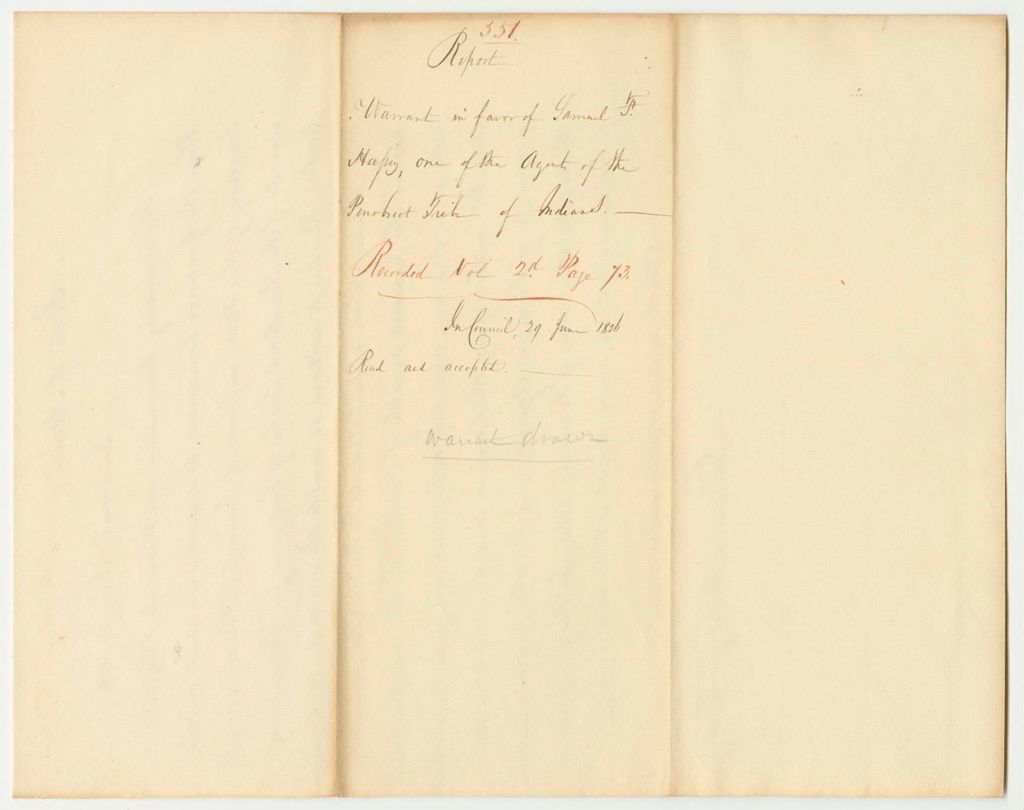 551.
Report
Warrant in favor of Samuel F.
Hussey, one of the Agents of the
Penobscot Tribe of Indians.
Recorded Vol 2d. Page 73.
In Council, 29 June 1826
Read and accepted.
warrant drawn